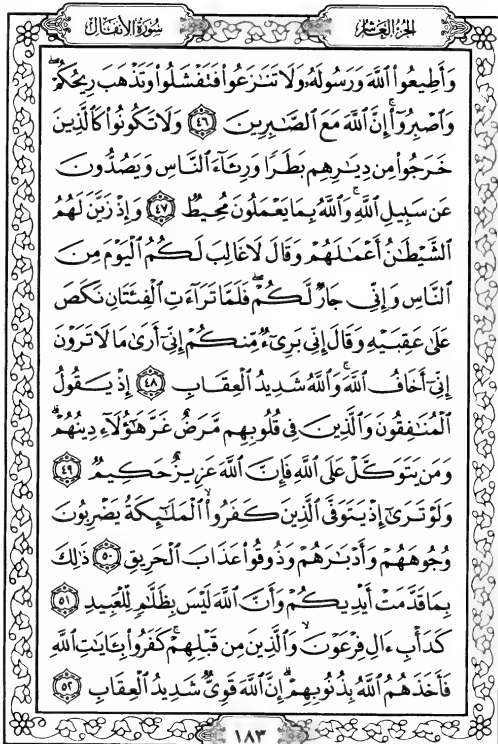 الجزء العاشر
سورة الأنفال
وَأَطِيعُوا۟ ٱللَّهَ وَرَسُولَهُۥ وَلَا تَنَٰزَعُوا۟ فَتَفْشَلُوا۟ وَتَذْهَبَ رِيحُكُمْ ۖ
وَٱصْبِرُوٓا۟ ۚ إِنَّ ٱللَّهَ مَعَ ٱلصَّٰبِرِينَ ٤٦ وَلَا تَكُونُوا۟ كَٱلَّذِينَ
خَرَجُوا۟ مِن دِيَٰرِهِم بَطَرًا وَرِئَآءَ ٱلنَّاسِ وَيَصُدُّونَ
عَن سَبِيلِ ٱللَّهِ ۚ وَٱللَّهُ بِمَا يَعْمَلُونَ مُحِيطٌ ٤٧ وَإِذْ زَيَّنَ لَهُمُ
ٱلشَّيْطَٰنُ أَعْمَٰلَهُمْ وَقَالَ لَا غَالِبَ لَكُمُ ٱلْيَوْمَ مِنَ
ٱلنَّاسِ وَإِنِّى جَارٌ لَّكُمْ ۖ فَلَمَّا تَرَآءَتِ ٱلْفِئَتَانِ نَكَصَ
عَلَىٰ عَقِبَيْهِ وَقَالَ إِنِّى بَرِىٓءٌ مِّنكُمْ إِنِّىٓ أَرَىٰ مَا لَا تَرَوْنَ
إِنِّىٓ أَخَافُ ٱللَّهَ ۚ وَٱللَّهُ شَدِيدُ ٱلْعِقَابِ ٤٨ إِذْ يَقُولُ
ٱلْمُنَٰفِقُونَ وَٱلَّذِينَ فِى قُلُوبِهِم مَّرَضٌ غَرَّ هَٰٓؤُلَآءِ دِينُهُمْ ۗ
وَمَن يَتَوَكَّلْ عَلَى ٱللَّهِ فَإِنَّ ٱللَّهَ عَزِيزٌ حَكِيمٌ ٤٩
وَلَوْ تَرَىٰٓ إِذْ يَتَوَفَّى ٱلَّذِينَ كَفَرُوا۟ ۙ ٱلْمَلَٰٓئِكَةُ يَضْرِبُونَ
وُجُوهَهُمْ وَأَدْبَٰرَهُمْ وَذُوقُوا۟ عَذَابَ ٱلْحَرِيقِ ٥٠ ذَٰلِكَ
بِمَا قَدَّمَتْ أَيْدِيكُمْ وَأَنَّ ٱللَّهَ لَيْسَ بِظَلَّٰمٍ لِّلْعَبِيدِ ٥١
كَدَأْبِ ءَالِ فِرْعَوْنَ ۙ وَٱلَّذِينَ مِن قَبْلِهِمْ ۚ كَفَرُوا۟ بِـَٔايَٰتِ ٱللَّهِ
فَأَخَذَهُمُ ٱللَّهُ بِذُنُوبِهِمْ ۗ إِنَّ ٱللَّهَ قَوِىٌّ شَدِيدُ ٱلْعِقَابِ ٥٢
١٨٣